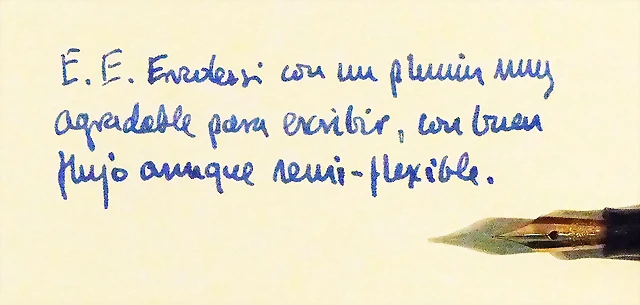 E. E. Ercolessi con un plumín muy
agradable para escribir, con buen
flujo aunque semi-flexible.